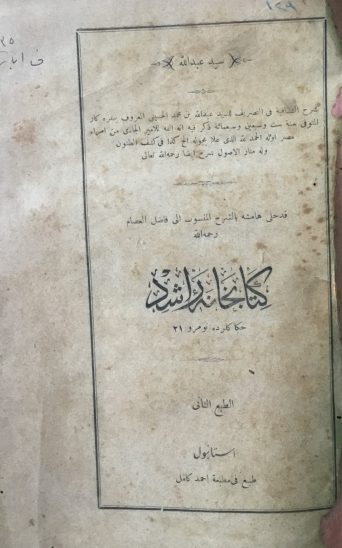 ١٢٩
سيد عبدالله
شرح الشافية فى التصريف للسيد عبدالله بن محمد الحسينى المعروف بنقره كار
المتوفى سنة ست وسبعين وسبعمائة ذكر فيه انه الفه للامير الجاى من امراء
مصر اوله الحمد لله الذى علا بحوله الخ كذا فى كشف الظنون
وله منار الاصول شرح ايضا رحمه الله تعالى
قد حلى هامشه بالشرح المنسوب الى فاضل العصام
رحمه الله
كتابخانه راشد
حكاكلرده نومرو ٢١
الطبع الثانى
استانبول
طبع فى مطبعة احمد كامل